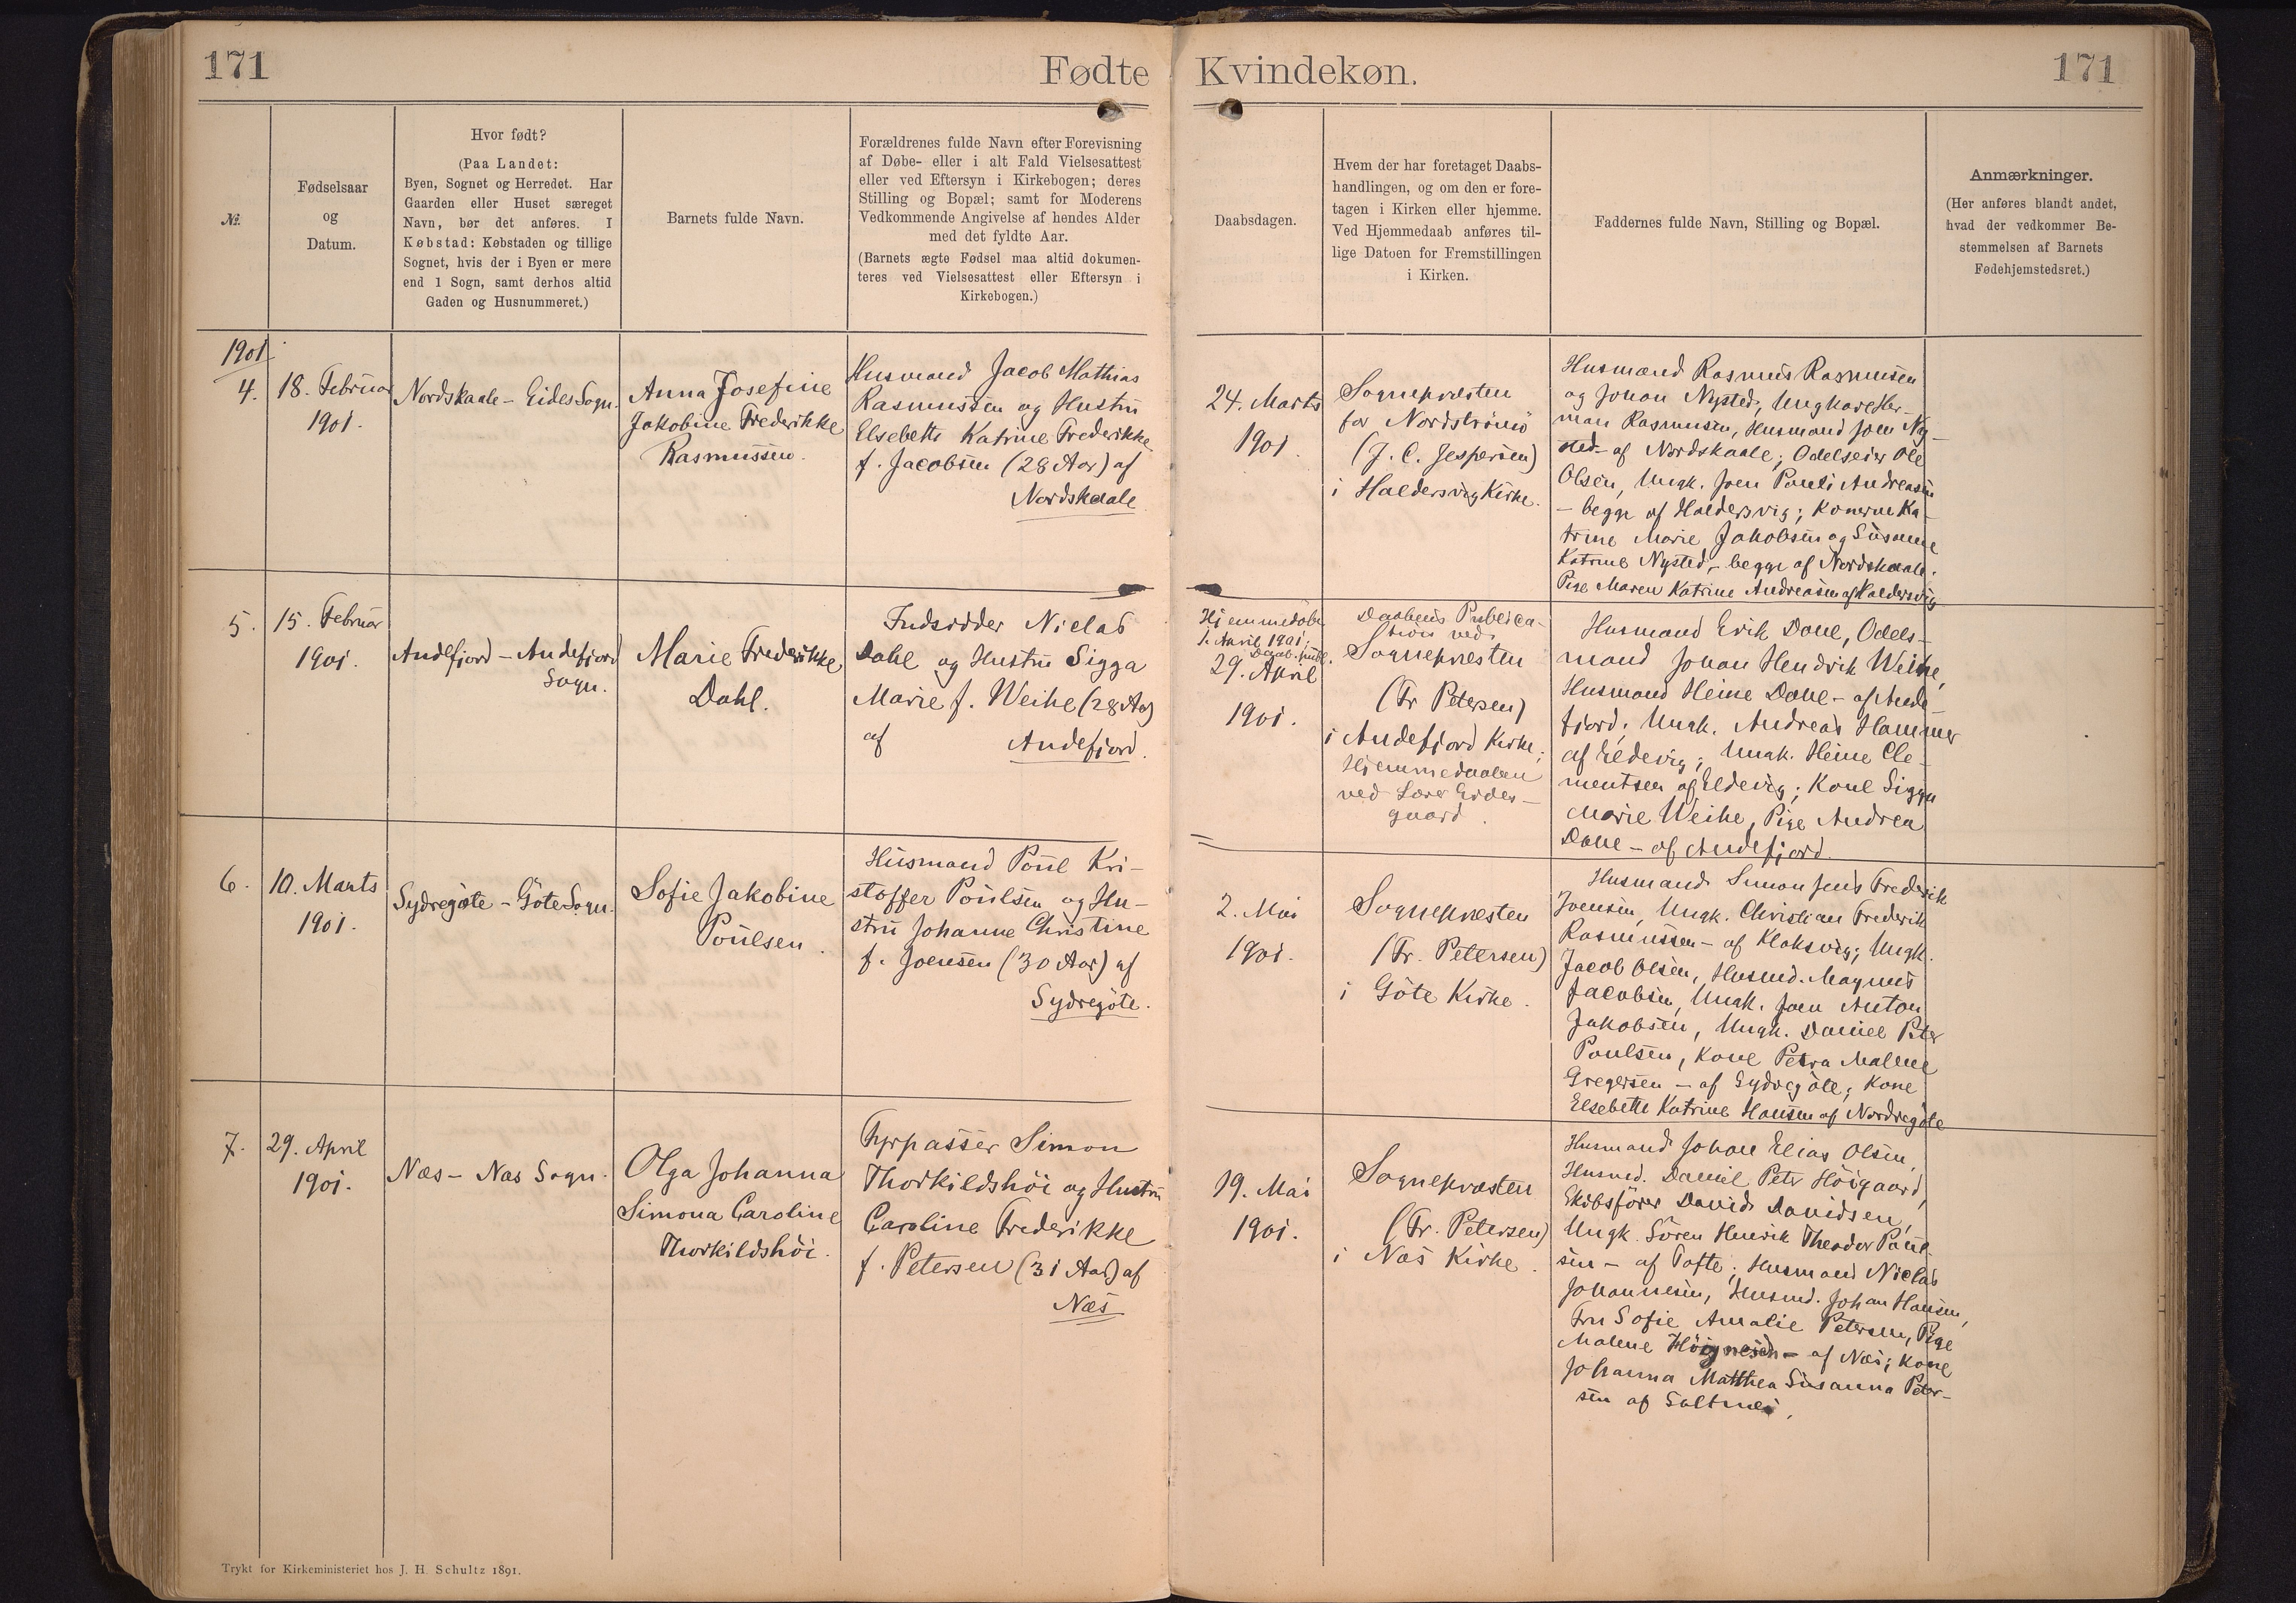 171
Fødte
Kvindekøn.
171
№.
Fødselsaar
og
Datum.
Hvor født?
(Paa Landet:
Byen, Sognet og Herredet. Har
Gaarden eller Huset særeget
Navn, bør det anføres. I
Købstad: Købstaden og tillige
Sognet, hvis der i Byen er mere
end 1 Sogn, samt derhos altid
Gaden og Husnummeret.)
Barnets fulde Navn.
Forældrenes fulde Navn efter Forevisning
af Døbe- eller i alt Fald Vielsesattest
eller ved Eftersyn i Kirkebogen; deres
Stilling og Bopæl; samt for Moderens
Vedkommende Angivelse af hendes Alder
med det fyldte Aar.
(Barnets ægte Fødsel maa altid dokumen-
teres ved Vielsesattest eller Eftersyn i
Kirkebogen.)
Daabsdagen.
Hvem der har foretaget Daabs-
handlingen, og om den er fore-
tagen i Kirken eller hjemme.
Ved Hjemmedaab anføres til-
lige Datoen for Fremstillingen
i Kirken.
Faddernes fulde Navn, Stilling og Bopæl.
Anmærkninger.
(Her anføres blandt andet,
hvad der vedkommer Be-
stemmelsen af Barnets
Fødehjemstedsret.)
1901
4.
18. Februar
1901.
Nordskaale - Eides Sogn.
Anna Josefine
Jakobine Frederikke
Rasmussen.
Husmand Jacob Mathias
Rasmussen og Hustru
Elsebeth Katrine Frederikke
f. Jacobsen (28 Aar) af
Nordskaale
24. Marts
1901.
Sognepræsten
for Nordströmö
(J. C. Jespersen)
i Haldersvig Kirke.
Husmand Rasmus Rasmussen
og Johan Nysted, Ungkarl Her-
man Rasmussen, Husmand Joen Ny-
sted - af Nordskaale; Odelseier Ole
Olsen, Ungk. Joen Pauli Andreasen
- begge af Haldersvig; Konerne Ka-
trine Marie Jakobsen og Susanne
Katrine Nysted, - begge af Nordskaale.
Pige Maren Katrine Andreasen af Haldersvig
5.
15. Februar
1901.
Andefjord - Andefjord
Sogn.
Marie Frederikke
Dahl.
Indsidder Niclas
Dahl og Hustru Sigga
Marie f. Weihe (28 Aar)
af Andefjord.
Hjemmedöbt
1. April 1901.
Daab. publ.
29. April
1901.
Daabens Publica-
tion ved
Sognepræsten
(Fr Petersen)
i Andefjord Kirke;
Hjemmedaaben
ved Lærer Eides-
gaard.
Husmand Erik Dahl, Odels-
mand Johan Hendrik Weihe,
Husmand Heine Dahl - af Ande-
fjord; Ungk. Andreas Hammer
af Eldevig; Ungk. Heine Cle-
mentsen af Eldevig; Kone Sigga
Marie Weihe, Pige Andrea
Dahl - af Andefjord.
6.
10. Marts
1901.
Sydregöte - Göte Sogn.
Sofie Jakobine
Poulsen.
Husmand Poul Kri-
stoffer Poulsen og Hu-
stru Johanne Christine
f. Joensen (30 Aar) af
Sydregöte.
2. Mai
1901.
Sognepræsten
(Fr. Petersen)
i Göte Kirke.
Husmand Simon Jens Frederik
Joensen, Ungk. Christian Frederik
Rasmussen - af Klaksvig; Ungk.
Jacob Olsen, Husmd. Magnus
Jacobsen, Ungk. Joen Anton
Jakobsen, Ungk. Daniel Peter
Poulsen, Kone Petra Malene
Gregersen - af Sydregöte; Kone
Elsebeth Katrine Hansen af Nordregöte
7.
29. April
1901.
Næs - Næs Sogn.
Olga Johanna
Simona Caroline
Thorkildshöi.
Fyrpasser Simon
Thorkildshöi og Hustru
Caroline Frederikke
f. Petersen (31 Aar) af
Næs
19. Mai
1901.
Sognepræsten
(Fr. Petersen)
i Næs Kirke.
Husmand Johan Elias Olsen,
Husmd. Daniel Peter Höigaard,
Skibsförer David Davidsen,
Ungk. Sören Henrik Theodor Poul-
sen - af Tofte; Husmand Niclas
Johannesen, Husmd. Johan Hansen,
Fru Sofie Amalie Petersen, Pige
Malene - af Næs; Kone
Johanna Matthea Susanna Peter-
sen af Saltnæs.
Trykt for Kirkeministeriet hos J. H. Schultz 1891.